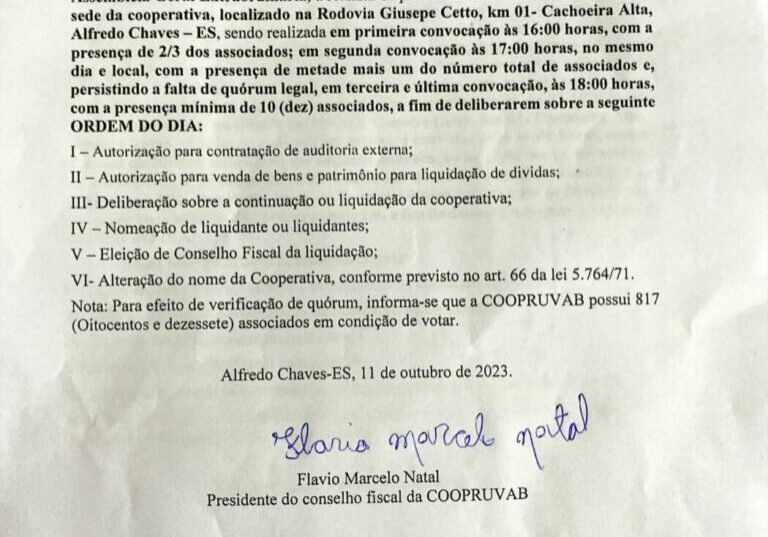 sede da cooperativa, localizado na Rodovia Giusepe Cetto, km 01- Cachoeira Alta,
Alfredo Chaves – ES, sendo realizada em primeira convocação às 16:00 horas, com a
presença de 2/3 dos associados; em segunda convocação às 17:00 horas, no mesmo
dia e local, com a presença de metade mais um do número total de associados e,
persistindo a falta de quórum legal, em terceira e última convocação, às 18:00 horas,
com a presença mínima de 10 (dez) associados, a fim de deliberarem sobre a seguinte
ORDEM DO DIA:
I – Autorização para contratação de auditoria externa;
II – Autorização para venda de bens e patrimônio para liquidação de dividas;
III- Deliberação sobre a continuação ou liquidação da cooperativa;
IV – Nomeação de liquidante ou liquidantes;
V – Eleição de Conselho Fiscal da liquidação;
VI- Alteração do nome da Cooperativa, conforme previsto no art. 66 da lei 5.764/71.
Nota: Para efeito de verificação de quórum, informa-se que a COOPRUVAB possui 817
(Oitocentos e dezessete) associados em condição de votar.
Alfredo Chaves-ES, 11 de outubro de 2023.
Flavio Marcelo Natal
Presidente do conselho fiscal da COOPRUVAB